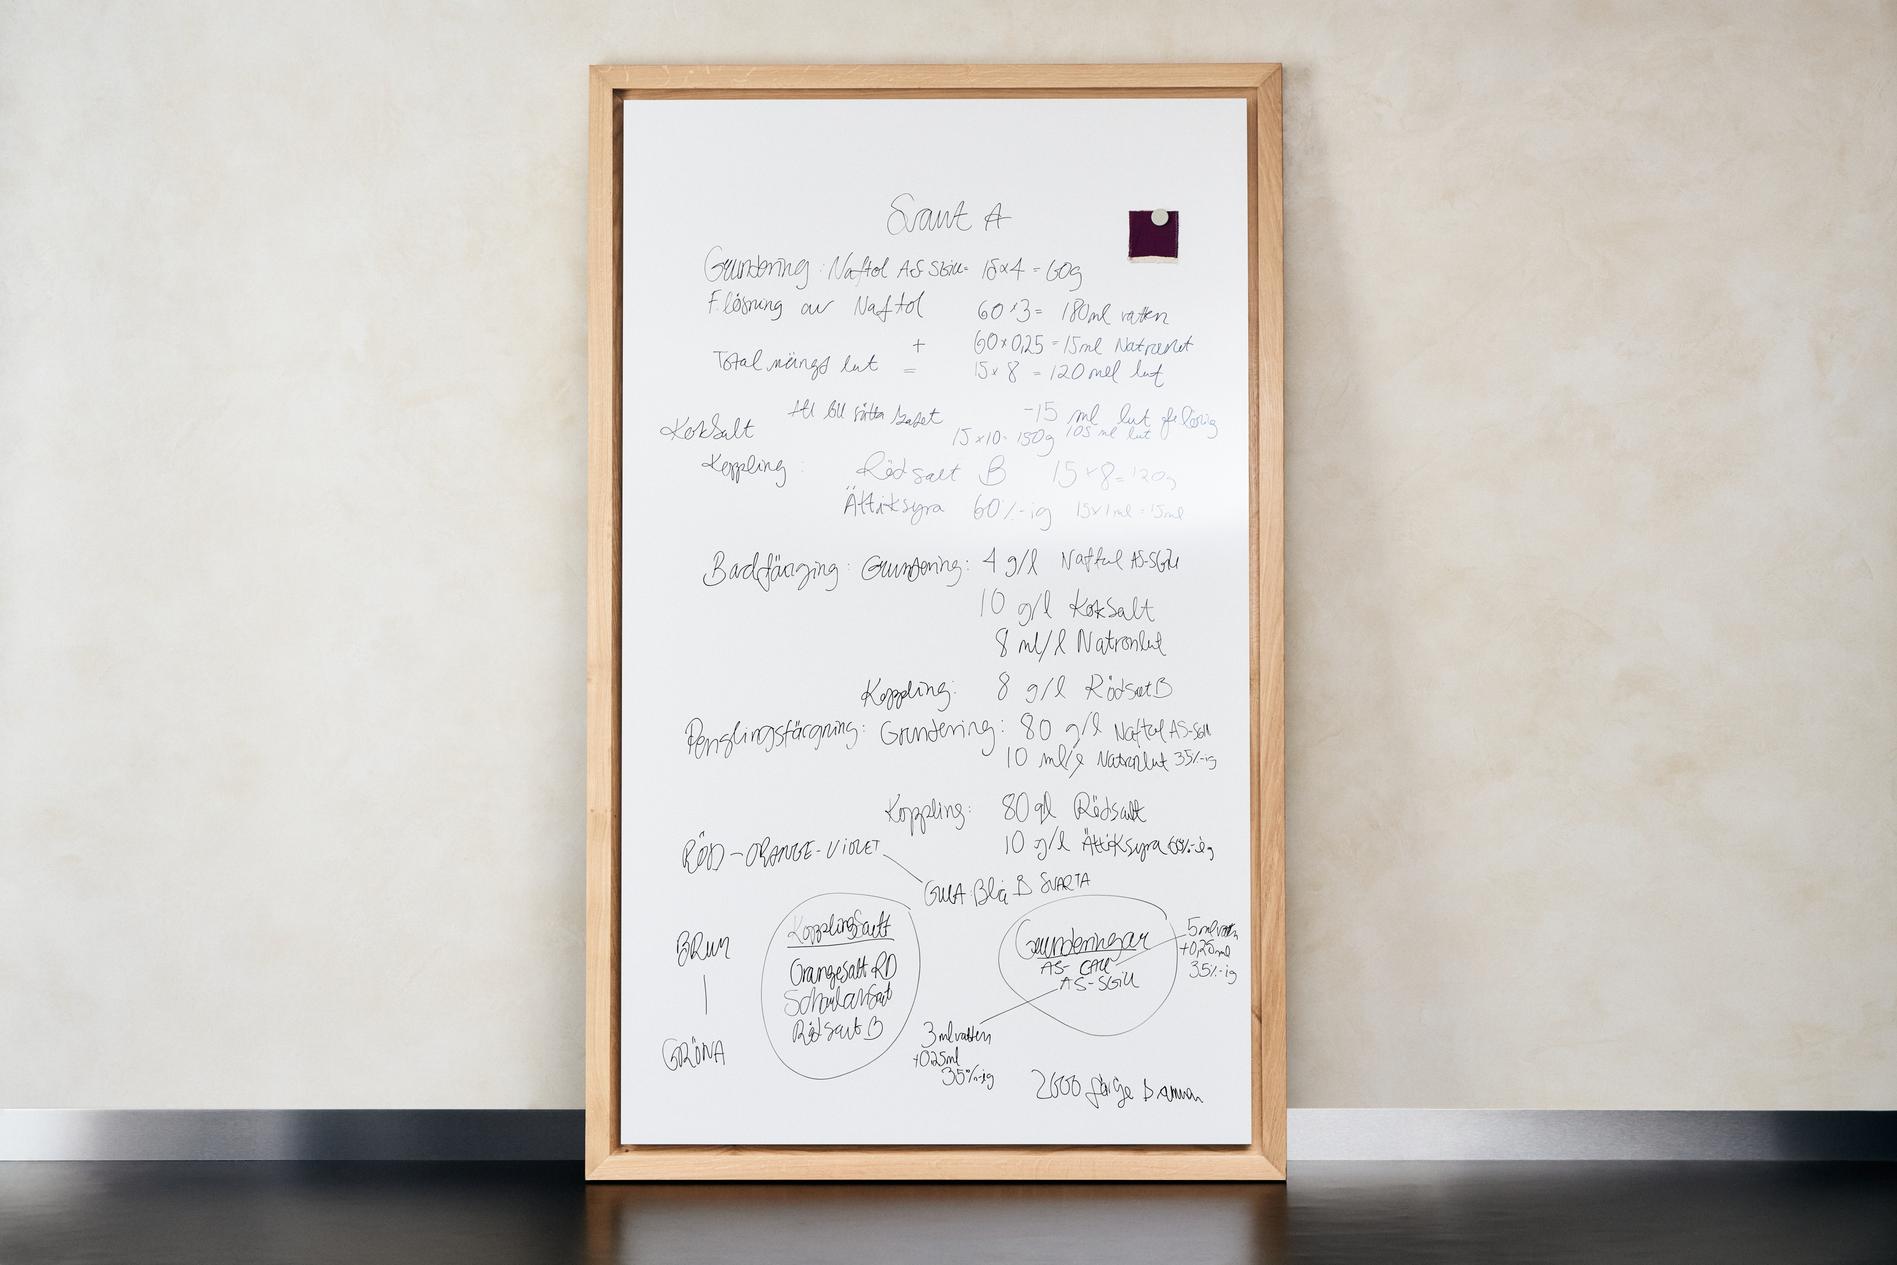 Svart A
Grundering: Naftol AS SGIII= 15x4 = 60g
F.lösning av Naftol 60×3= 180ml vatten
+ 60x0,25 = 15ml Natronlut
Total mängd lut = 15x8 = 120 ml lut
Att till sätta badet -15 ml lut
Koksalt 15x10= 150g 105 ml lut
Koppling: Rödsalt B 15x8=120g
Ättiksyra 60%-ig 15x1ml=15ml
Badfärging: Grundering: 4 g/l Naftol AS-SGIII
10 g/l Koksalt
8 ml/l Natronlut
Koppling: 8 g/l Rödsalt B
Penslingsfärgning: Grundering: 80 g/l Naftol AS-SGIII
10 ml/l Natronlut 35%-ig
Koppling: 80 g/l Rödsalt
10 g/l Ättiksyra 60%-ig
RÖD-ORANGE-VIOLET
GULA Blå B SVARTA
Kopplingsalt
Orangesalt RD
Rödsalt B
BRUN
GRÖNA
Grunderingar
AS-
AS-SGIII
5 ml vatten
+0,25ml
35%-ig
3 ml vatten
+0,25ml
35%-ig
2000 färge